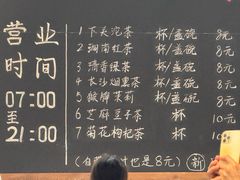 营业
时间
07:00
至
21:00
1 下关沱茶 杯/盖碗 8元
2 湖南红茶 杯/盖碗 8元
3 清香绿茶 杯/盖碗 8元
4 长沙烟熏茶 杯/盖碗 8元
5 猴牌茉莉 杯/盖碗 8元
6 芝麻豆子茶 杯 10元
7 菊花枸杞茶 杯 10元
(自 时也是8元) 新